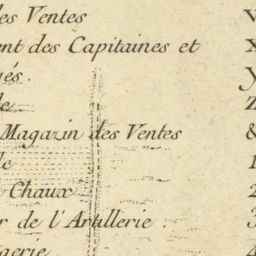 des Ventes V
ent des Capitaines et X
és. y
le Z
Magazin des Ventes &
le 1
Chaux 2
r de l'Artillerie. 3
gerie 4